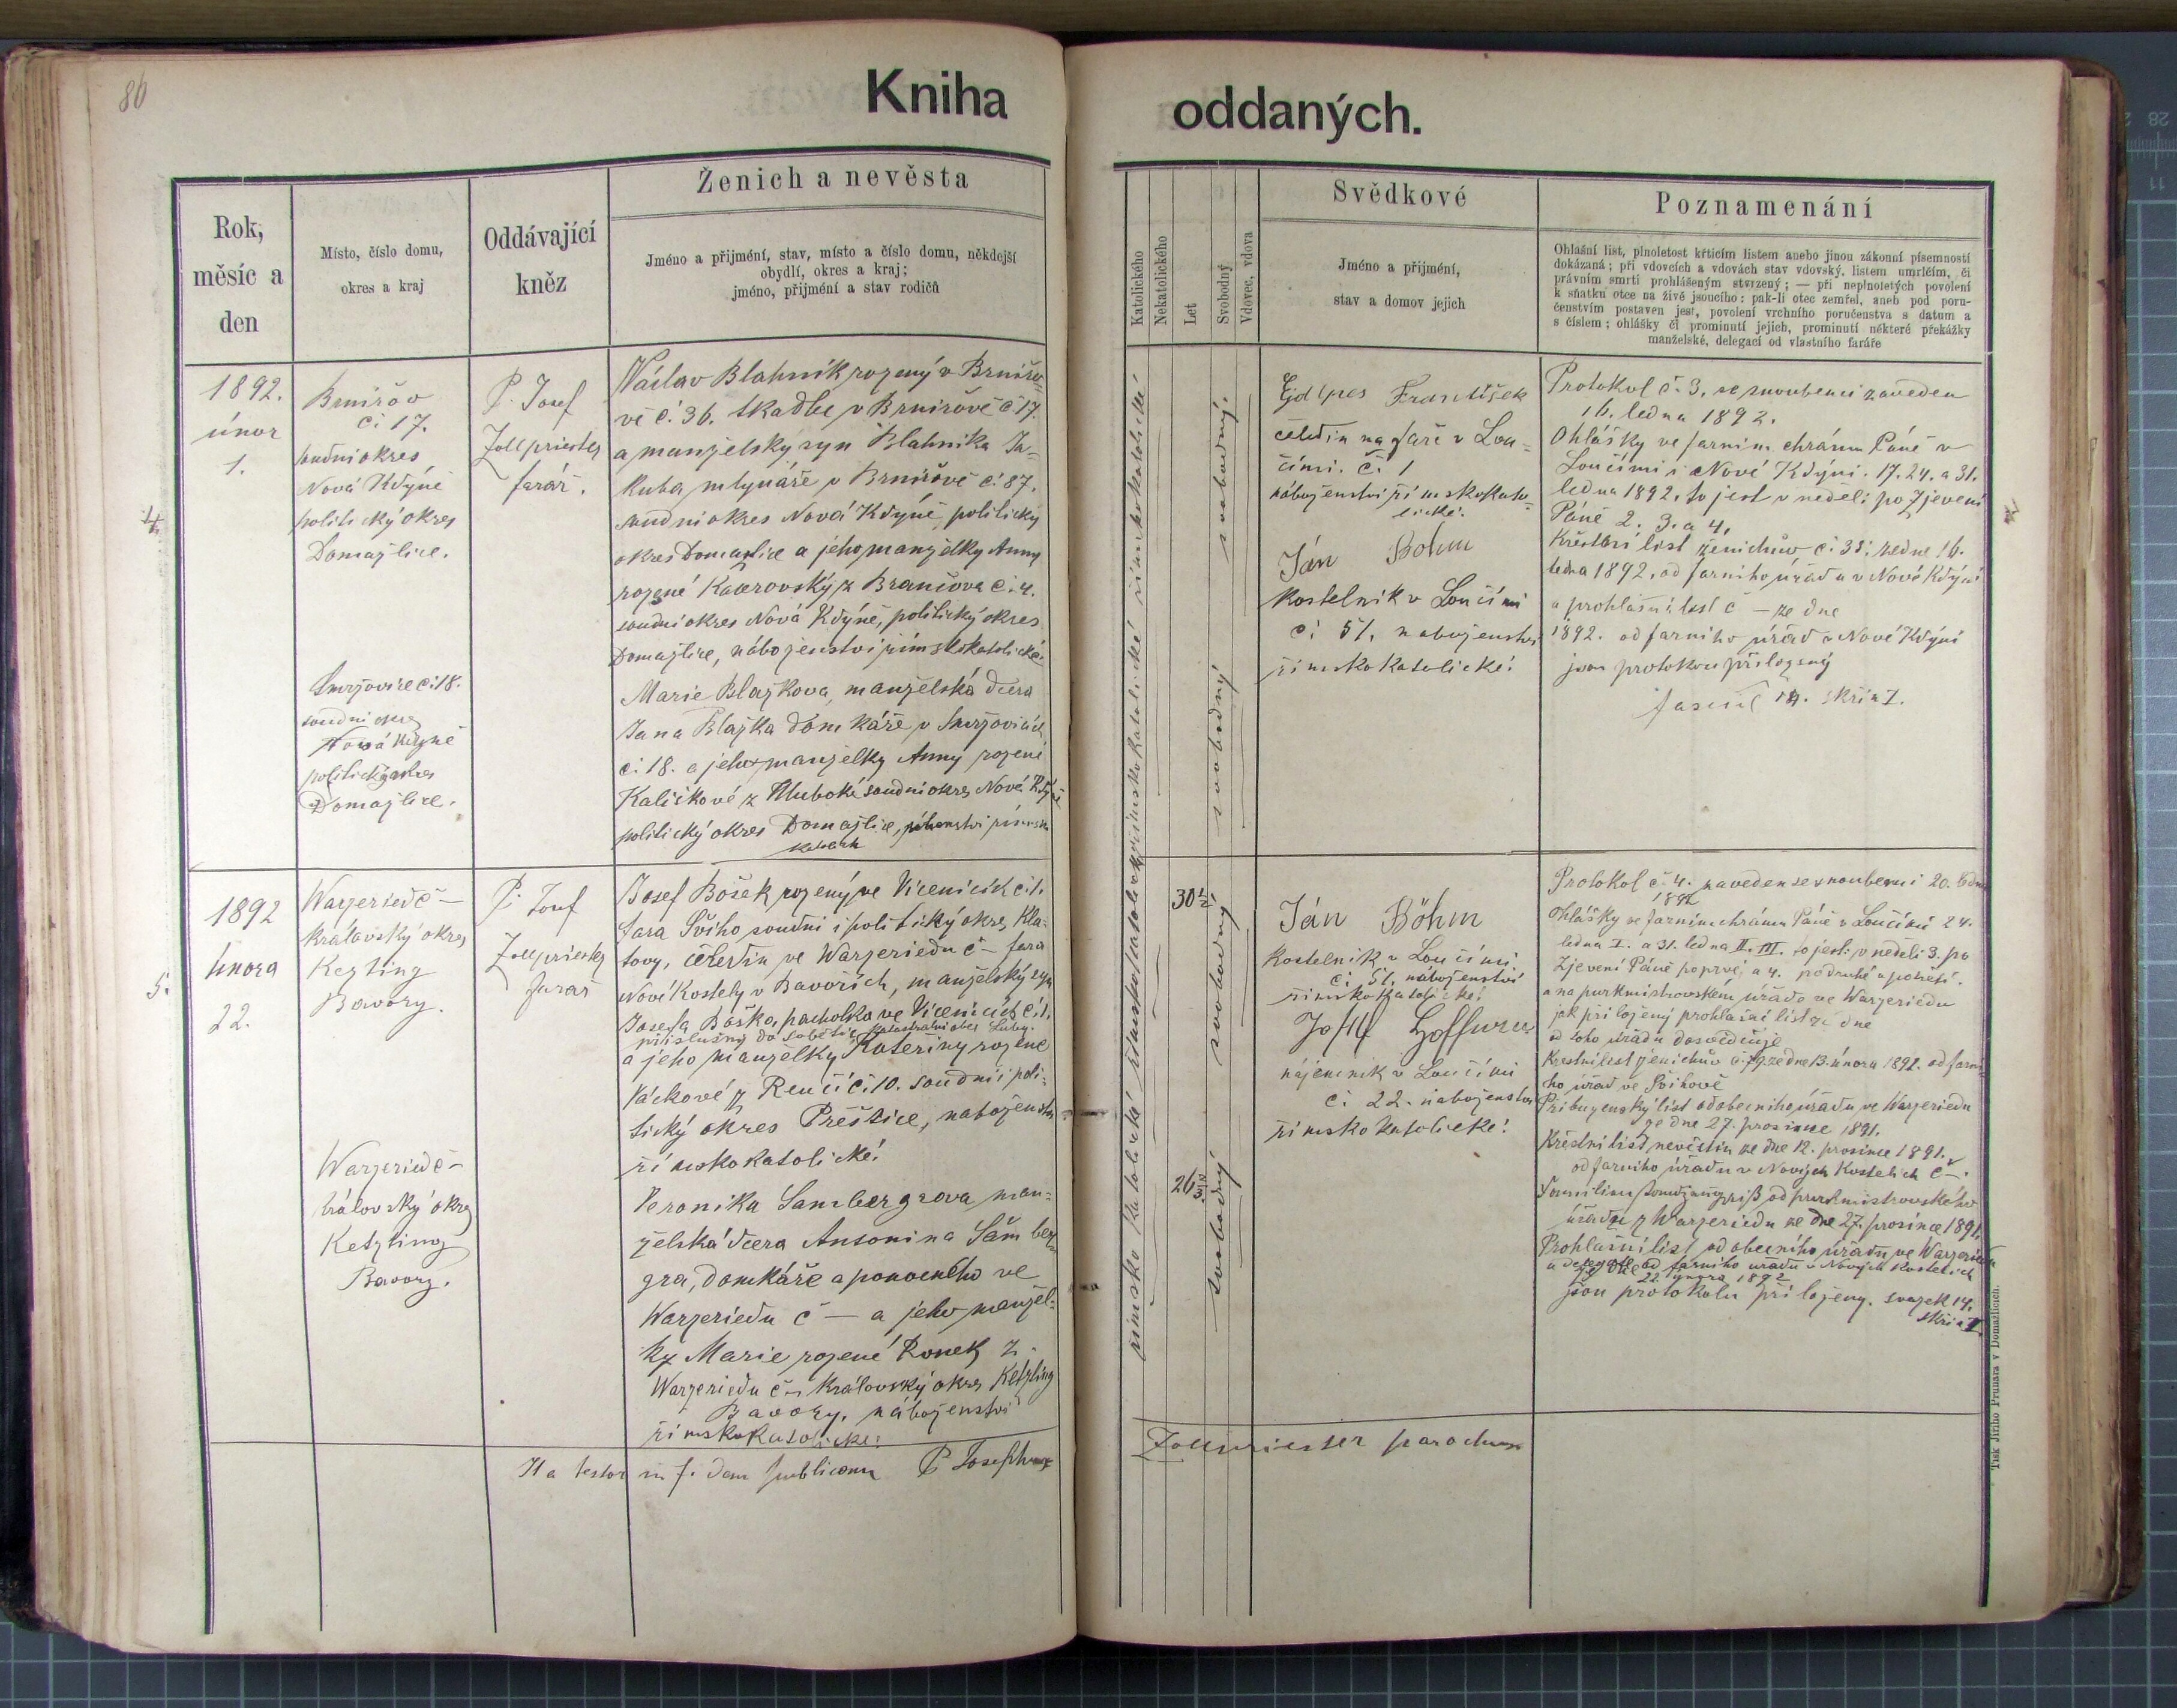 86
Kniha
oddaných.
Rok,
měsíc a
den
Místo, číslo domu,
okres a kraj
Oddávající
kněz
Ženich a nevěsta
Jméno a přijmění, stav, místo a číslo domu, někdejší
obydlí, okres a kraj;
jméno, přijmění a stav rodičů
4.
1892.
únor
1.
Brnířov
č. 17.
soudní okres
Nová Kdýně
politický okres
Domažlice.
P. Josef
Zollpriester
farář.
Václav Blahník rozený v Brnířo=
vě č. 36. tkadlec v Brnířově č 17.
a manželský syn Blahníka Ja=
kuba mlynáře v Brnířově č. 87.
soudní okres Nová Kdýně, politický
okres Domažlice a jeho manželky Anny
rozené z Branšova č. 4.
soudní okres Nová Kdýně, politický okres
Domažlice, náboženství římskokatolické.
Smržovice č. 18.
soudní okres
Nová Kdyně
politický okres
Domažlice.
Marie Blažkova, manželská dcera
Jana Blažka domkáře v Smržovicích
č. 18. a jeho manželky Anny rozené
Kališkové z Hluboké soudní okres Nová Kdýně
politický okres Domažlice,
5.
1892
února
22.
Warzeried č –
královský okres
Kezting
Bavory.
P. Josef
Zollpriester
farář
Josef Bošek rozený ve Vícenicích č. 1.
fara Švihov soudní i politický okres Kla=
tovy, čeledín ve Warzeriedu č – fara
Nové Kostely v Bavořích, manželský syn
Josefa Boška, pacholka ve Vícenicích č. 1.
příslušný do katastrální obec Luby.
a jeho manželky Kateřiny rozené
Váckové z Renčí č. 10. soudní i poli=
tický okres Přeštice, náboženství
římskokatolické.
Warzeried č –
královský okres
Ketzting
Bavory.
Veronika Sambergrova man=
želská dcera Antonina Sam ber
gra, domkáře a ponocného ve
Warzeriedu č – a jeho manžel=
ky Marie rozené Ronek z
Warzeriedu č – královský okres Ketzting
Bavory, náboženství
římskokatolické.
Ita testor in fidem publicam P. Josephus
Katolického
Nekatolického
Let
Svobodný
Vdovec, vdova
Svědkové
Jméno a přijmění,
stav a domov jejich
Poznamenání
Ohlašní list, plnoletost křticím listem anebo jinou zákonní písemností
dokázaná; při vdovcích a vdovách stav vdovský, listem umrlčím, či
právním smrti prohlášeným stvrzený; — při neplnoletých povolení
k sňatku otce na živě jsoucího: pak-li otec zemřel, aneb pod poru-
čenstvím postaven jest, povolení vrchního poručenstva s datum a
s číslem; ohlášky či prominutí jejich, prominutí některé překážky
manželské, delegací od vlastního faráře
římsko katolické
římskokatolické
římskokatolické
římsko katolické
svobodný.
svobodný
František
čeledín na faře v Lou=
čími. č. 1
náboženství římskokato=
lické.
Ján Böhm
kostelník v Loučími
č. 51. náboženství
římskokatolické.
Protokol č. 3. se snoubenci zaveden
16. ledna 1892.
Ohlášky ve farním chrámu Páně v
Loučími i Nové Kdýni. 17. 24. a 31.
ledna 1892. to jest v neděli po Zjevení
Páně 2. 3. a 4.
Křestní list ženichův č. 35. ze dne 16.
ledna 1892. od farního úřadu v Nové Kdýni
a prohlašní list č – ze dne
1892. od farního úřadu v Nové Kdýni
jsou protokolu přiloženy
fascicl 14. skříň I.
30½
svobodný
26
svobodný
Ján Böhm
kostelník v Loučími
č. 51. náboženství
římskokatolické.
Josef
nájemník v Loučími
č. 22. náboženství
římskokatolické.
Protokol č. 4. zaveden se snoubenci 20. ledna
1892
Ohlášky ve farním chrámu Páně v Loučími 24.
ledna I. a 31. ledna II. III. to jest: v neděli 3. po
Zjevení Páně poprvé, a 4. podruhé a potřetí.
a na purkmistrovském úřadě ve Warzeriedu
jak přiložený prohlašní list ze dne
od toho úřadu dosvědčuje
Křestní list ženichův č. 79. ze dne 13. února 1892. od farní
ho úřad ve Švihově
list od obecního úřadu ve Warzeriedu
ze dne 27. prosince 1891.
Křestní list nevěstin ze dne 12. prosince 1891.
od farního úřadu v Nových Kostelích č –.
od purkmistrovského
úřadu z Warzeriedu ze dne 27. prosince 1891.
Prohlašní list od obecního úřadu ve Warzeriedu
a delegace od farního úřadu v Nových Kostelích
ze dne 22. února 1892
jsou protokolu přiloženy. svazek 14.
skříň I.
Zollpriester parochus
Tisk Jiřího Prunara v Domažlicích.